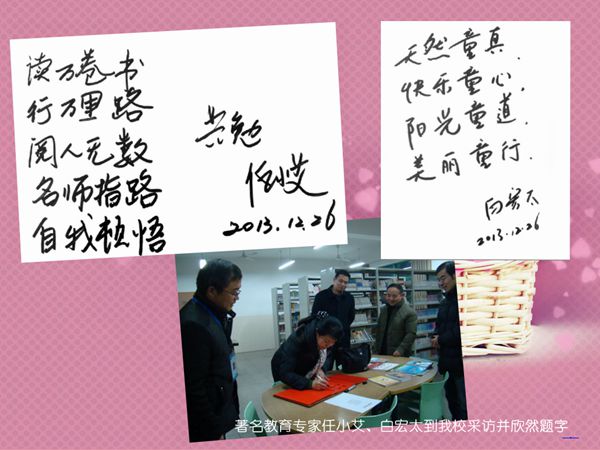 读万卷书
行万里路
阅人无数
名师指路
自我顿悟
共勉
任小艾
2013.12.26
天然童真.
快乐童心.
阳光童道.
美丽童行.
白宏太
2013.12.26
著名教育专家任小艾、白宏太到我校采访并欣然题字